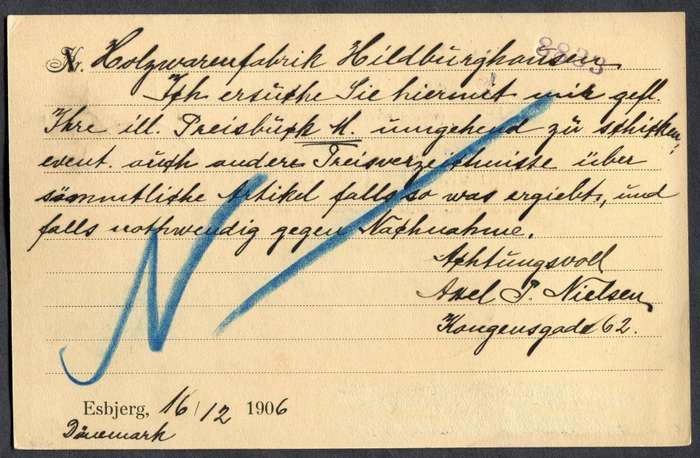 Nr. Holzwarenfabrik Hildburghausen
8823
Ich ersuche Sie hiermet mir gefl.
Ihre ill. Preisbuch H. umgehend zu schicken,
event. auch andere Preisverzeichnisse über
sämmtliche Artikel falls so was ergiebt, und
falls nothwendig gegen Nachnahme.
Achtungsvoll
Axel P. Nielsen
Kongensgade 62.
N
Esbjerg, 16/12 1906
Dänemark